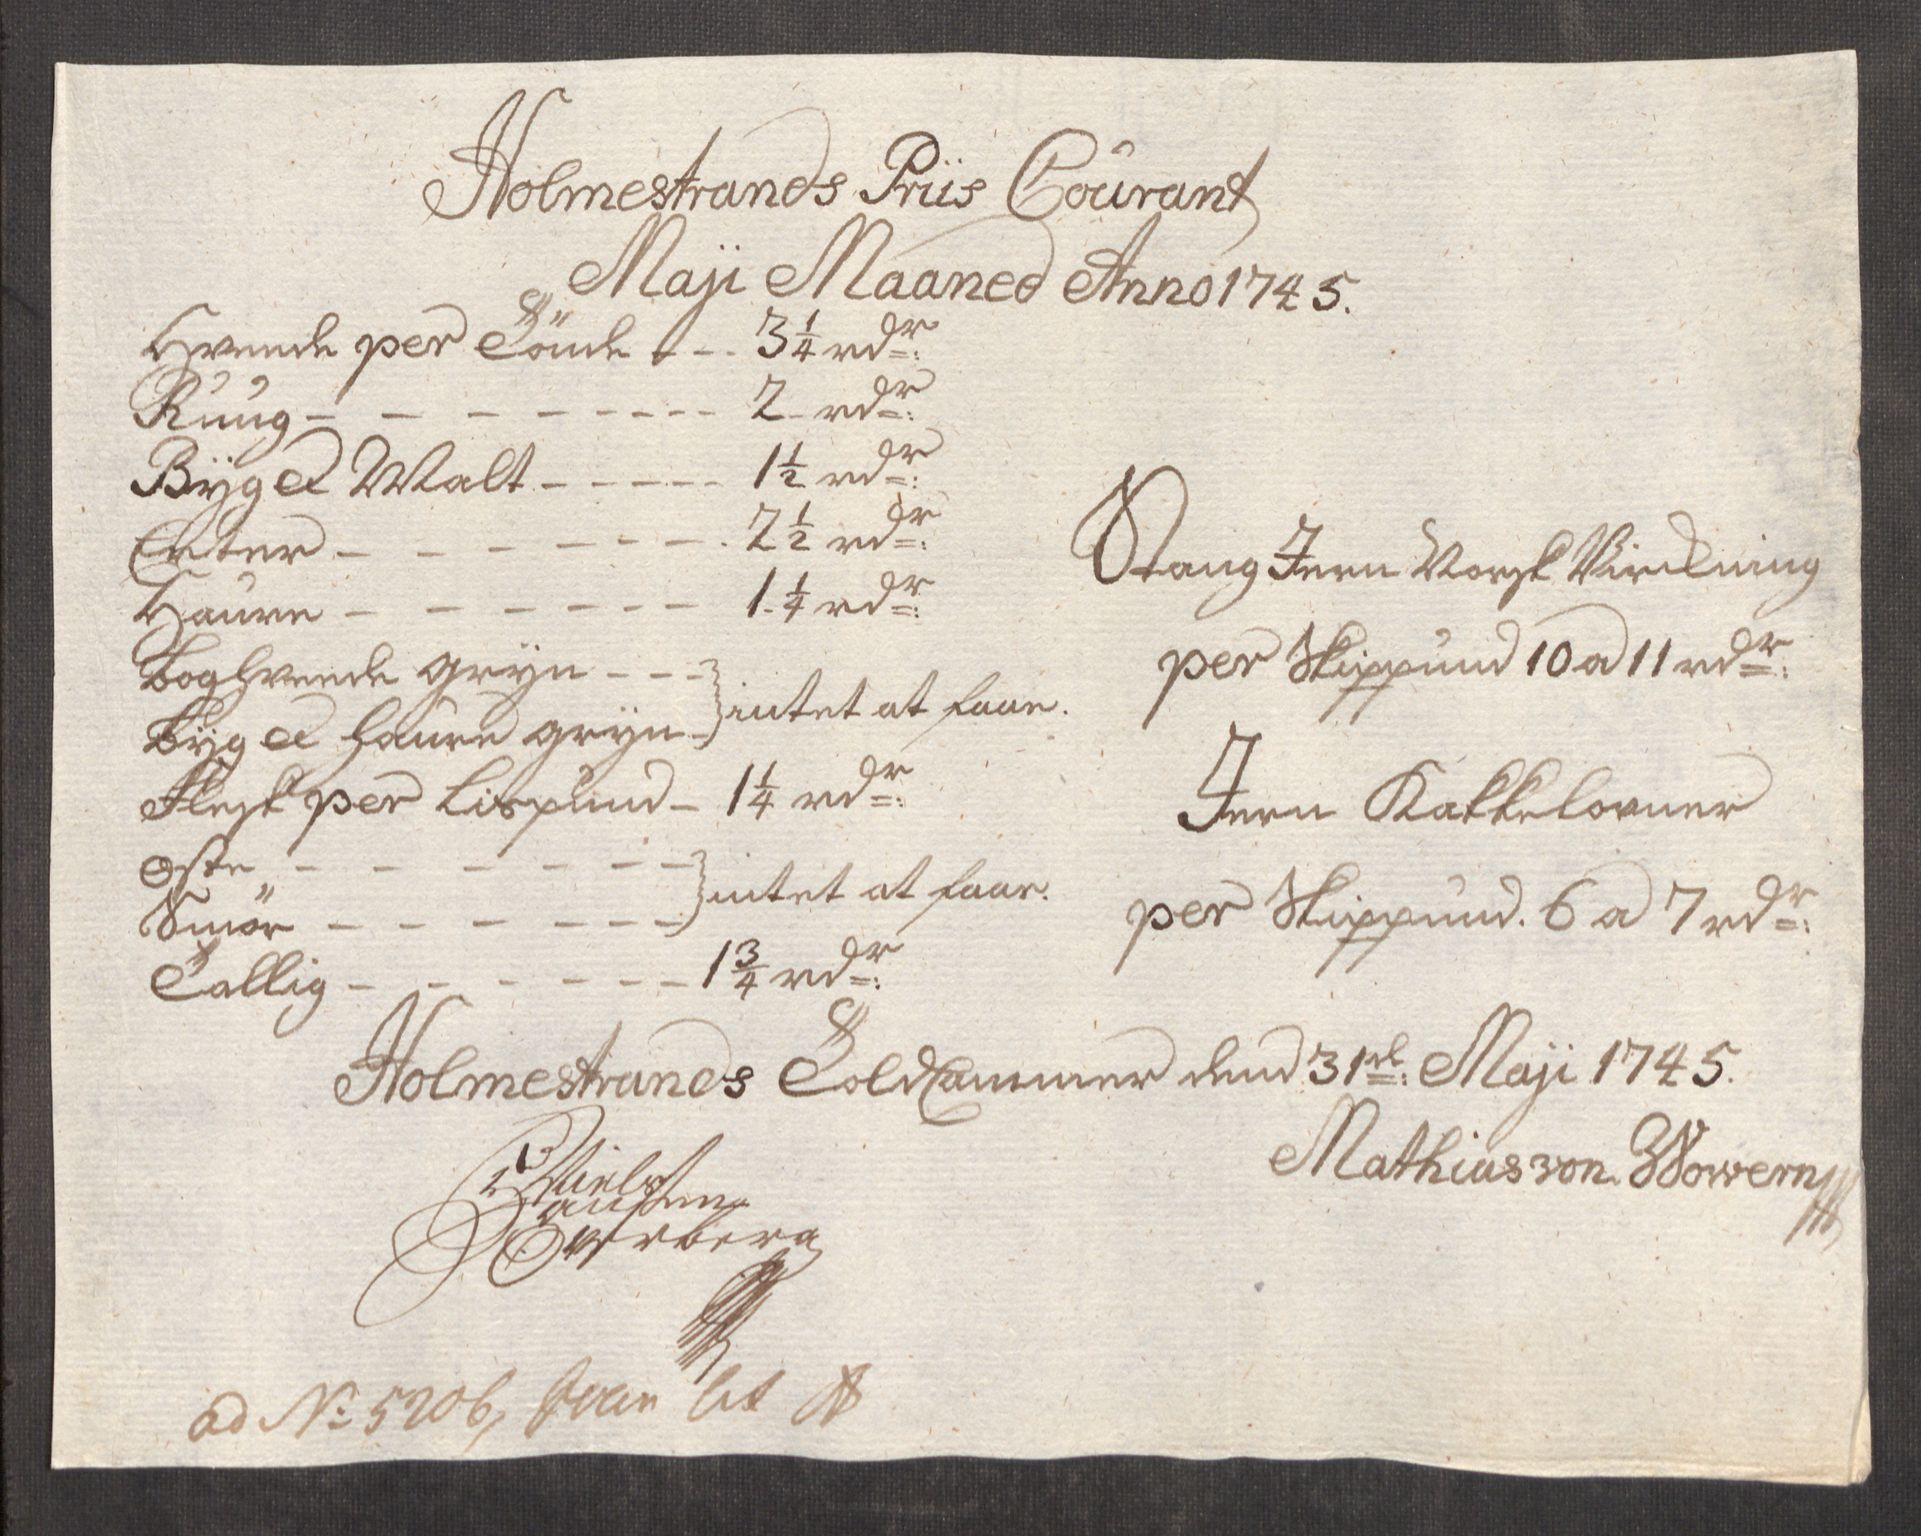 Holmestrands Priis Courant
Maji Maaned Anno 1745.
Hveede per Tönde - - - 3 1/4 rdr:
Ruug - - - - - - - - 2 - rdr:
Byg & Malt - - - - - 1 1/2 rdr:
Erter - - - - - - - 2 1/2 rdr:
Haure - - - - - - - 1 1/4 rdr:
Boghveede gryn - - -
Byg & haure gryn - } intet at faae.
Flesk per Lispund - 1 1/4 rdr:
Oste - - - - - - -
Smör - - - - - - - } intet at faae.
Tallig - - - - - - - 1 3/4 rdr:
Stang Jern Norsk Virckning
per Skippund 10 a 11 rdr:
Jern Kakkelovner
per Skippund. 6 a 7 rdr:
Holmestrands Told Cammer dend 31te: Maji 1745.
Mathias von Wowern
Niels
Hansen
Overberg
ad No: 5206, lit A